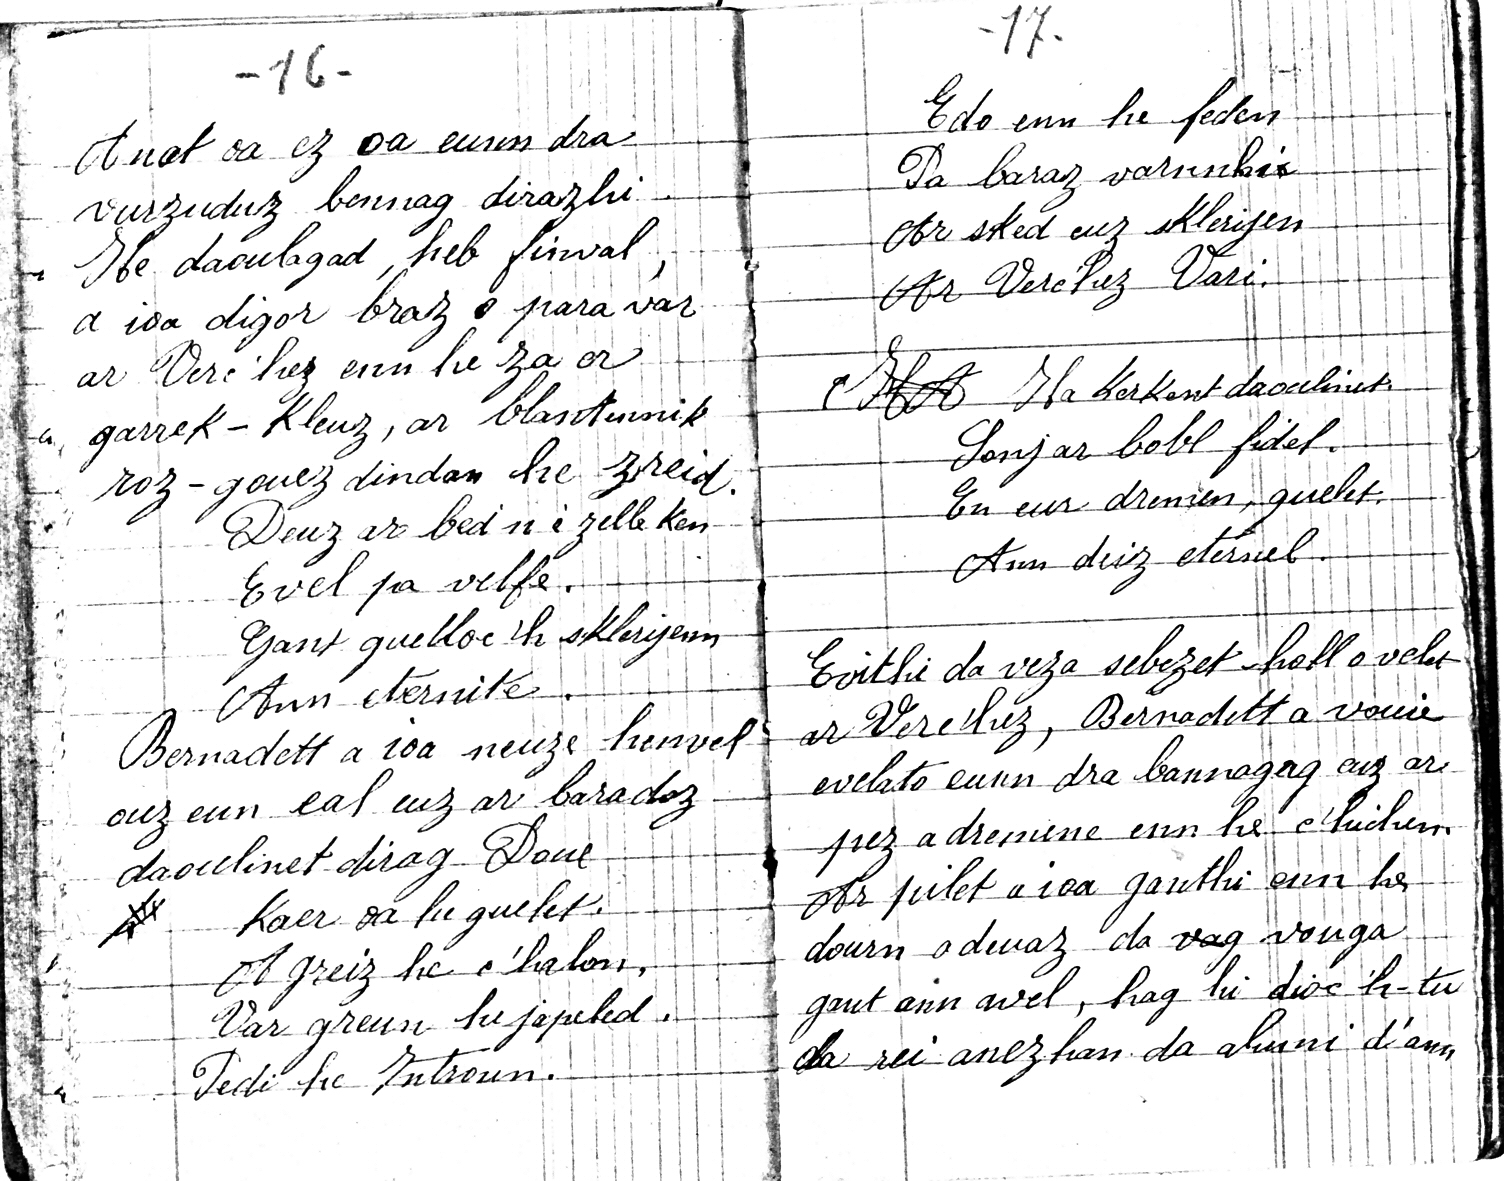 -16-
Anat oa ez oa eunn dra
vurzuduz bennag dirazhi.
He daoulagad, heb finval,
a ioa digor braz o para var
ar Verc'hez enn he za or
garrek-Kleuz, ar blantennik
roz-gouez dindan he zreid.
Deuz ar bed n'e zelle ken
Evel pa velfe.
Gant guelloc'h sklerijenn
Ann eternite.
Bernadett a ioa neuze henvel
ouz eun eal euz ar baradoz
daoulinet dirag Doue
Kaer oa he guelet.
A greiz he c'halon,
Var greun he japeled.
Pedi he Introun.
-17-
Edo enn he feden
Pa baraz varnnhi
Ar sked euz sklerijen
Ar Verc'hez Vari.
Ha Kerkent daoulinet
Sonj ar bobl fidel.
En eur dremen, guelet.
Ann deiz eternel.
Evithi da veza sebezet holl o velet
ar Verc'hez, Bernadett a vouie
evelato eunn dra bannagag euz ar
pez a dremene enn he c'hichen.
Ar pilet a ioa ganthi enn he
dourn a deuaz da vag vouga
gant ann avel, hag hi dioc'h-tu
da rei anezhan da alumi d'ann